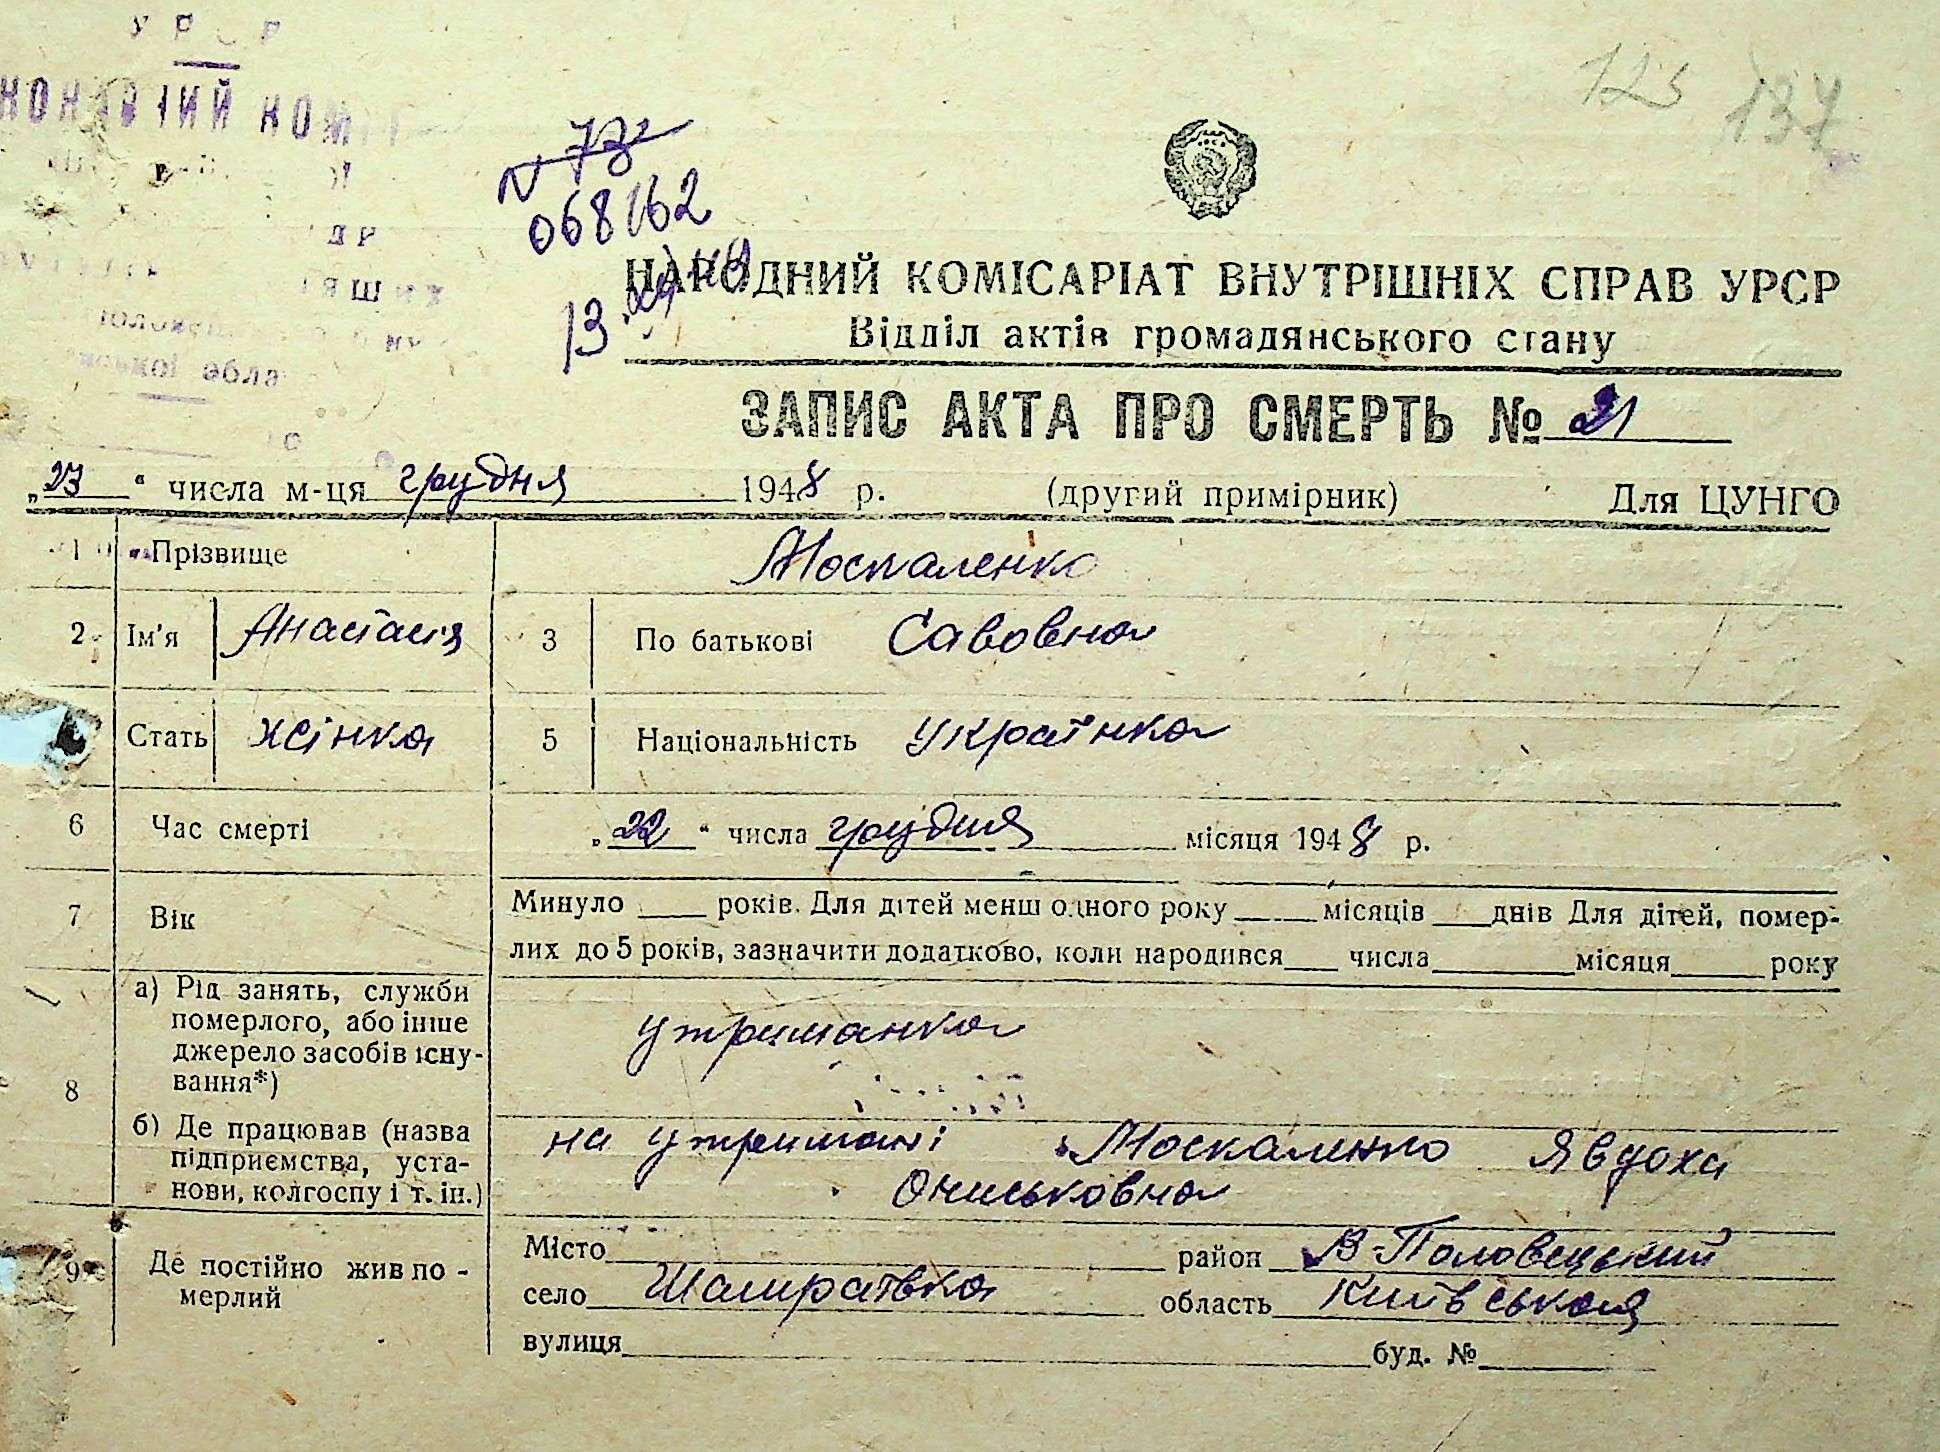 У Р С Р
125 137
N 73
068162
НАРОДНИЙ КОМІСАРІАТ ВНУТРІШНІХ СПРАВ УРСР
13
Відділ актів громадянського стану
ЗАПИС АКТА ПРО СМЕРТЬ № 21
„23“ числа м-ця грудня 1948 р. (другий примірник) Для ЦУНГО
1 Прізвище Москаленко
2 Ім'я Анастасія 3 По батькові Савовна
Стать жінка 5 Національність українка
6 Час смерті „22“ числа грудня місяця 1948 р.
7 Вік Минуло ____ років. Для дітей менш одного року ____ місяців ____ днів Для дітей, помер-
лих до 5 років, зазначити додатково, коли народився ____ числа ____ місяця ____ року
8 а) Рід занять, служби
померлого, або інше
джерело засобів існу-
вання*)
утриманка
б) Де працював (назва
підприємства, уста-
нови, колгоспу і т. ін.)
на утримані Москаленко Явдоха
Ониськовна
9 Де постійно жив по-
мерлий
Місто ____ район В-Половецький
село Шамраївка область Київська
вулиця ____ буд. № ____